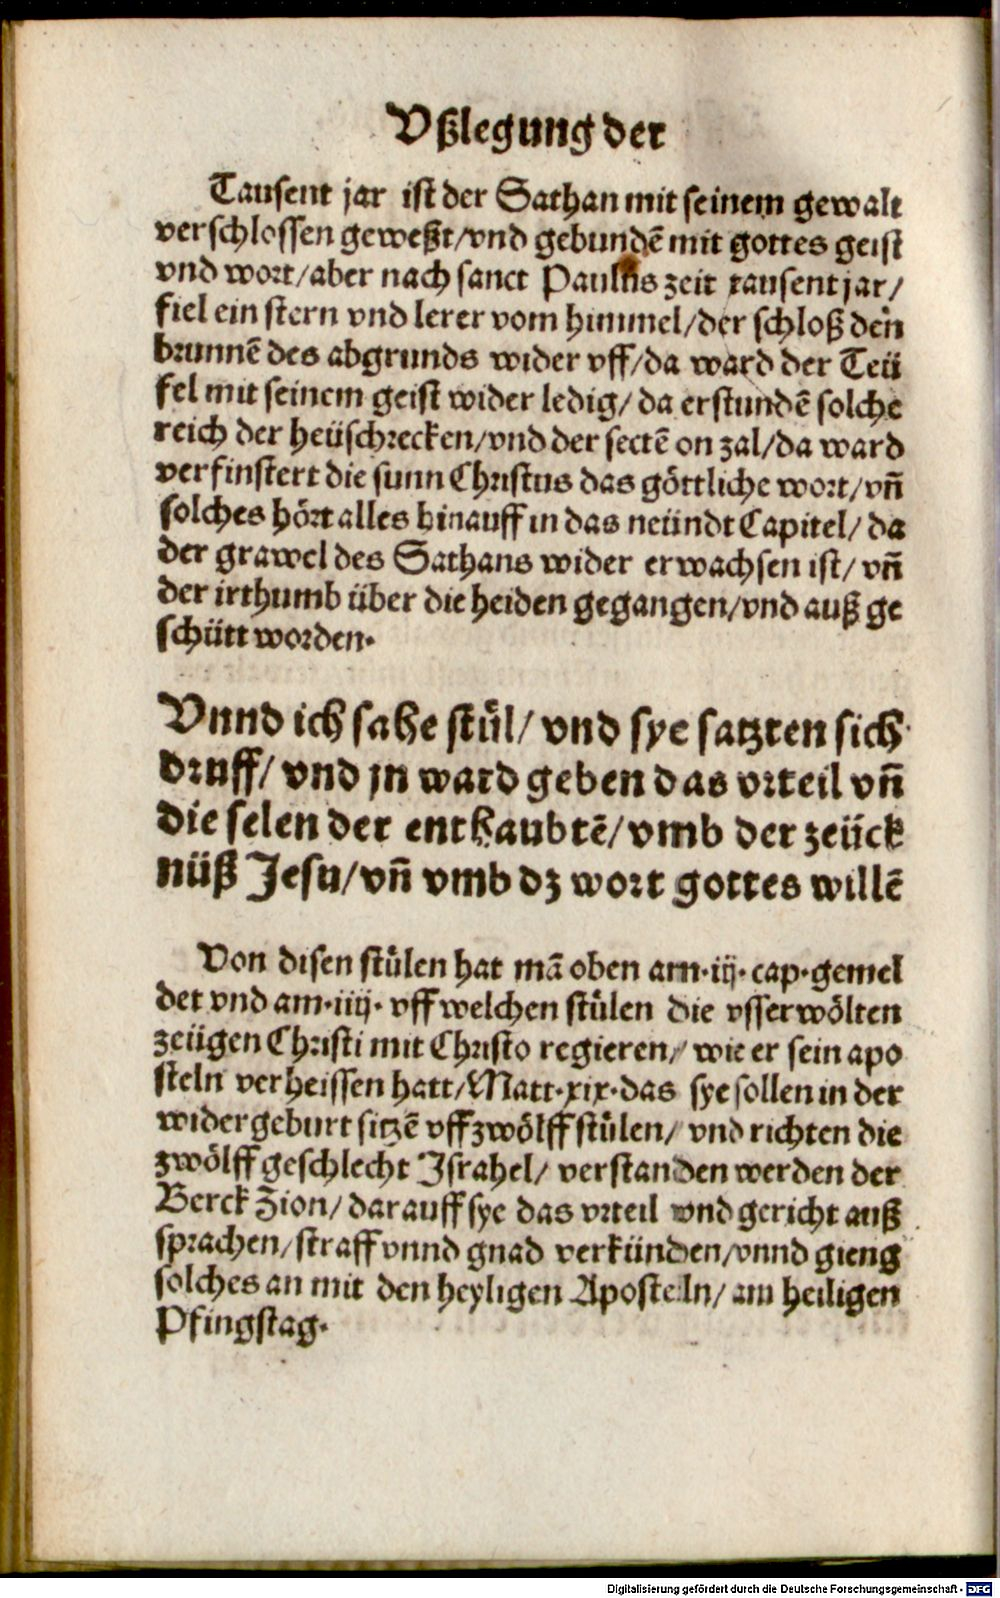 Vßlegung der
Tausent jar ist der Sathan mit seinem gewalt
verschlossen geweßt/vnd gebundē mit gottes geist
vnd wort/aber nach sanct Paulus zeit tausent jar/
fiel ein stern vnd lerer vom himmel/der schloß den
brunnē des abgrunds wider vff/da ward der Teü
fel mit seinem geist wider ledig/da erstundē solche
reich der heüschrecken/vnd der sectē on zal/da ward
verfinstert die sunn Christus das göttliche wort/vñ
solches hört alles hinauff in das neündt Capitel/da
der grawel des Sathans wider erwachsen ist/vñ
der irthumb über die heiden gegangen/vnd auß ge
schütt worden.
Vnnd ich sahe stůl/vnd sye satzten sich
druff/vnd jn ward geben das vrteil vñ
die selen der enthaubtē/vmb der zeück
nüß Jesu/vñ vmb dz wort gottes willē
Von disen stůlen hat mā oben am.iij.cap.gemel
det vnd am.iiij.vff welchen stůlen die vsserwölten
zeügen Christi mit Christo regieren/wie er sein apo
steln verheissen hatt/Matt.xix.das sye sollen in der
widergeburt sitzē vff zwölff stůlen/vnd richten die
zwölff geschlecht Israhel/verstanden werden der
Berck Zion/darauff sye das vrteil vnd gericht auß
sprachen/straff vnnd gnad verkünden/vnnd gieng
solches an mit den heyligen Aposteln/am heiligen
Pfingstag.
Digitalisierung gefördert durch die Deutsche Forschungsgemeinschaft - DFG